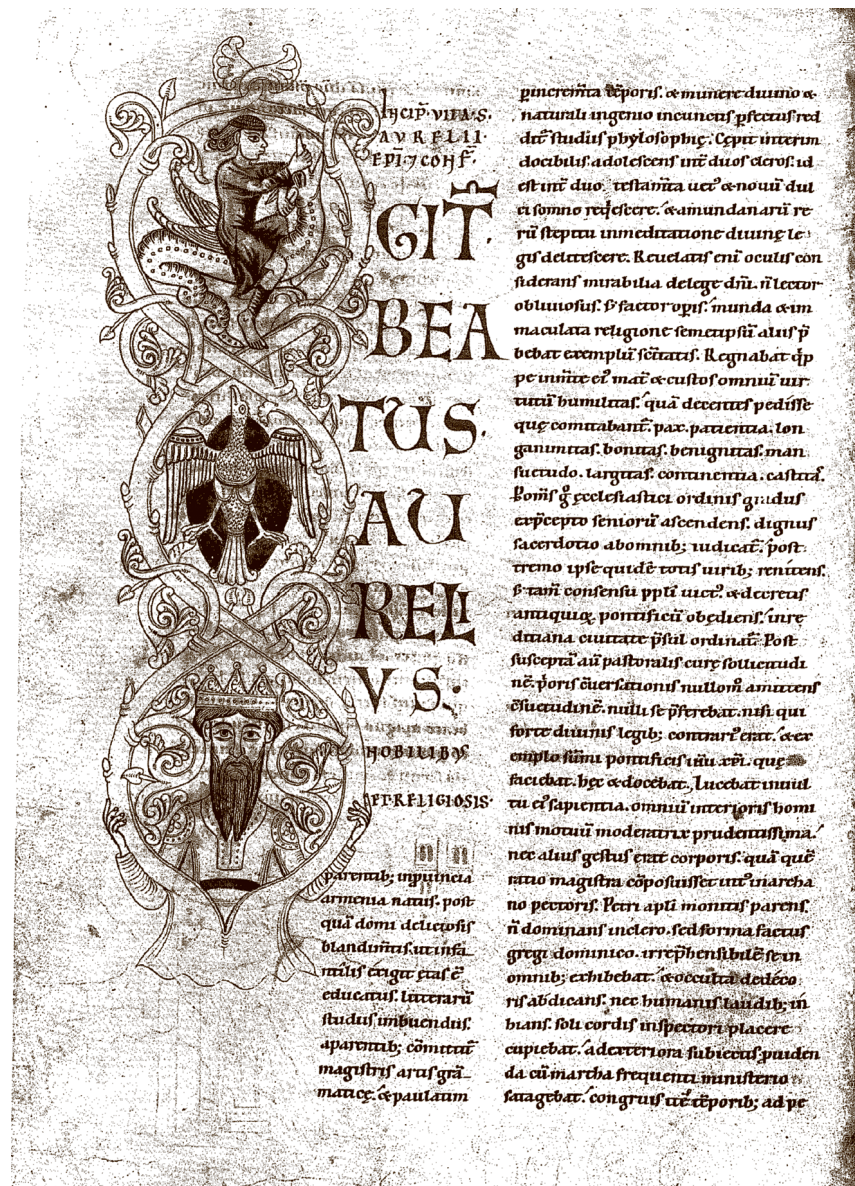 INCIP̄. VITA. S.
AVRELII.
EPĪ. ⁊ CONF̄.
GIT̄.
BEA
TUS.
AU
RELI
VS.
NOBILIBVS
ET. RELIGIOSIS.
parentib; inꝓuincia
armenia natus. post
quā domi deliciosis
blandim̄tis. ut infa
ntilis exigit ętas ē
educatus. litterarū
studiis imbuendus.
aparentib; cōmittit̄
magistris artis grā
maticę. & paulatim
ꝑincrem̄ta tēporis. & munere diuino &
naturali ingenio incunctis ꝑfectus red
dit̄ studiis phylosophię. Cępit interim
docibilis. adolescens int̄ duos cleros. id
est int̄ duo testam̄ta uet᷒ & nouū dul
ci somno reqͥescere. & amundanarū re
rū strepitu inmeditatione diuinę le
gis delitescere. Reuelatis eni᷒ oculis con
siderans mirabilia delege dn̄i. n̄ lector
obliuiosus. s; factor oꝑis. munda & im
maculata religione semetipsū aliis p̄
bebat exemplū sc̄itatis. Regnabat qͥp
pe inm̄te ei᷒ mat̄ & custos omniū uir
tutū humilitas. quā decentes pedisse
quę comitabant̄. pax. patientia. lon
ganimitas. bonitas. benignitas. man
suetudo. largitas. continentia. castitas̄.
Pom̄s gͦ ęcclesiastici ordinis gradus
exp̄cepto seniorū ascendens. dignus
sacerdotio abomnib; iudicat̄. post
tremo ipse quidē totis uirib; renitens.
s; tam̄ consensu ppl̄i uict᷒. & decretis
antiquoꝝ pontificū obędiens. inre
ditiana ciuitate p̄sul ordinat̄. Post
susceptā aū pastoralis curę sollicitudi
nē. p̄oris c̄uersationis nullom̊ amittens
c̄suetudinē. nulli se p̄ferebat. nisi qui
forte diuinis legib; contrari᷒ erat. & ex
emplo sūmi pontificis ih̄u xp̄i. quę
faciebat. hęc & docebat. Lucebat inuul
tu ei᷒ sapientia. omniū interioris homi
nis motuū moderatrix prudentissima.
nec alius gestus erat corporis. quā quē
ratio magistra cōposuisset int᷒ inarcha
no pectoris. Petri apl̄i monitis parens.
n̄ dominans inclero. sed forma factus
gregi dominico. irrep̄hensibilē se in
omnib; exhibebat. & occulta dedeco
ris abdicans. nec humanis laudib; in
hians. soli cordis inspectori placere
cupiebat. adexteriora subiectis ꝓuiden
da cū martha frequenti ministerio
satagebat. congruis it̄ē tēporib; ad pe